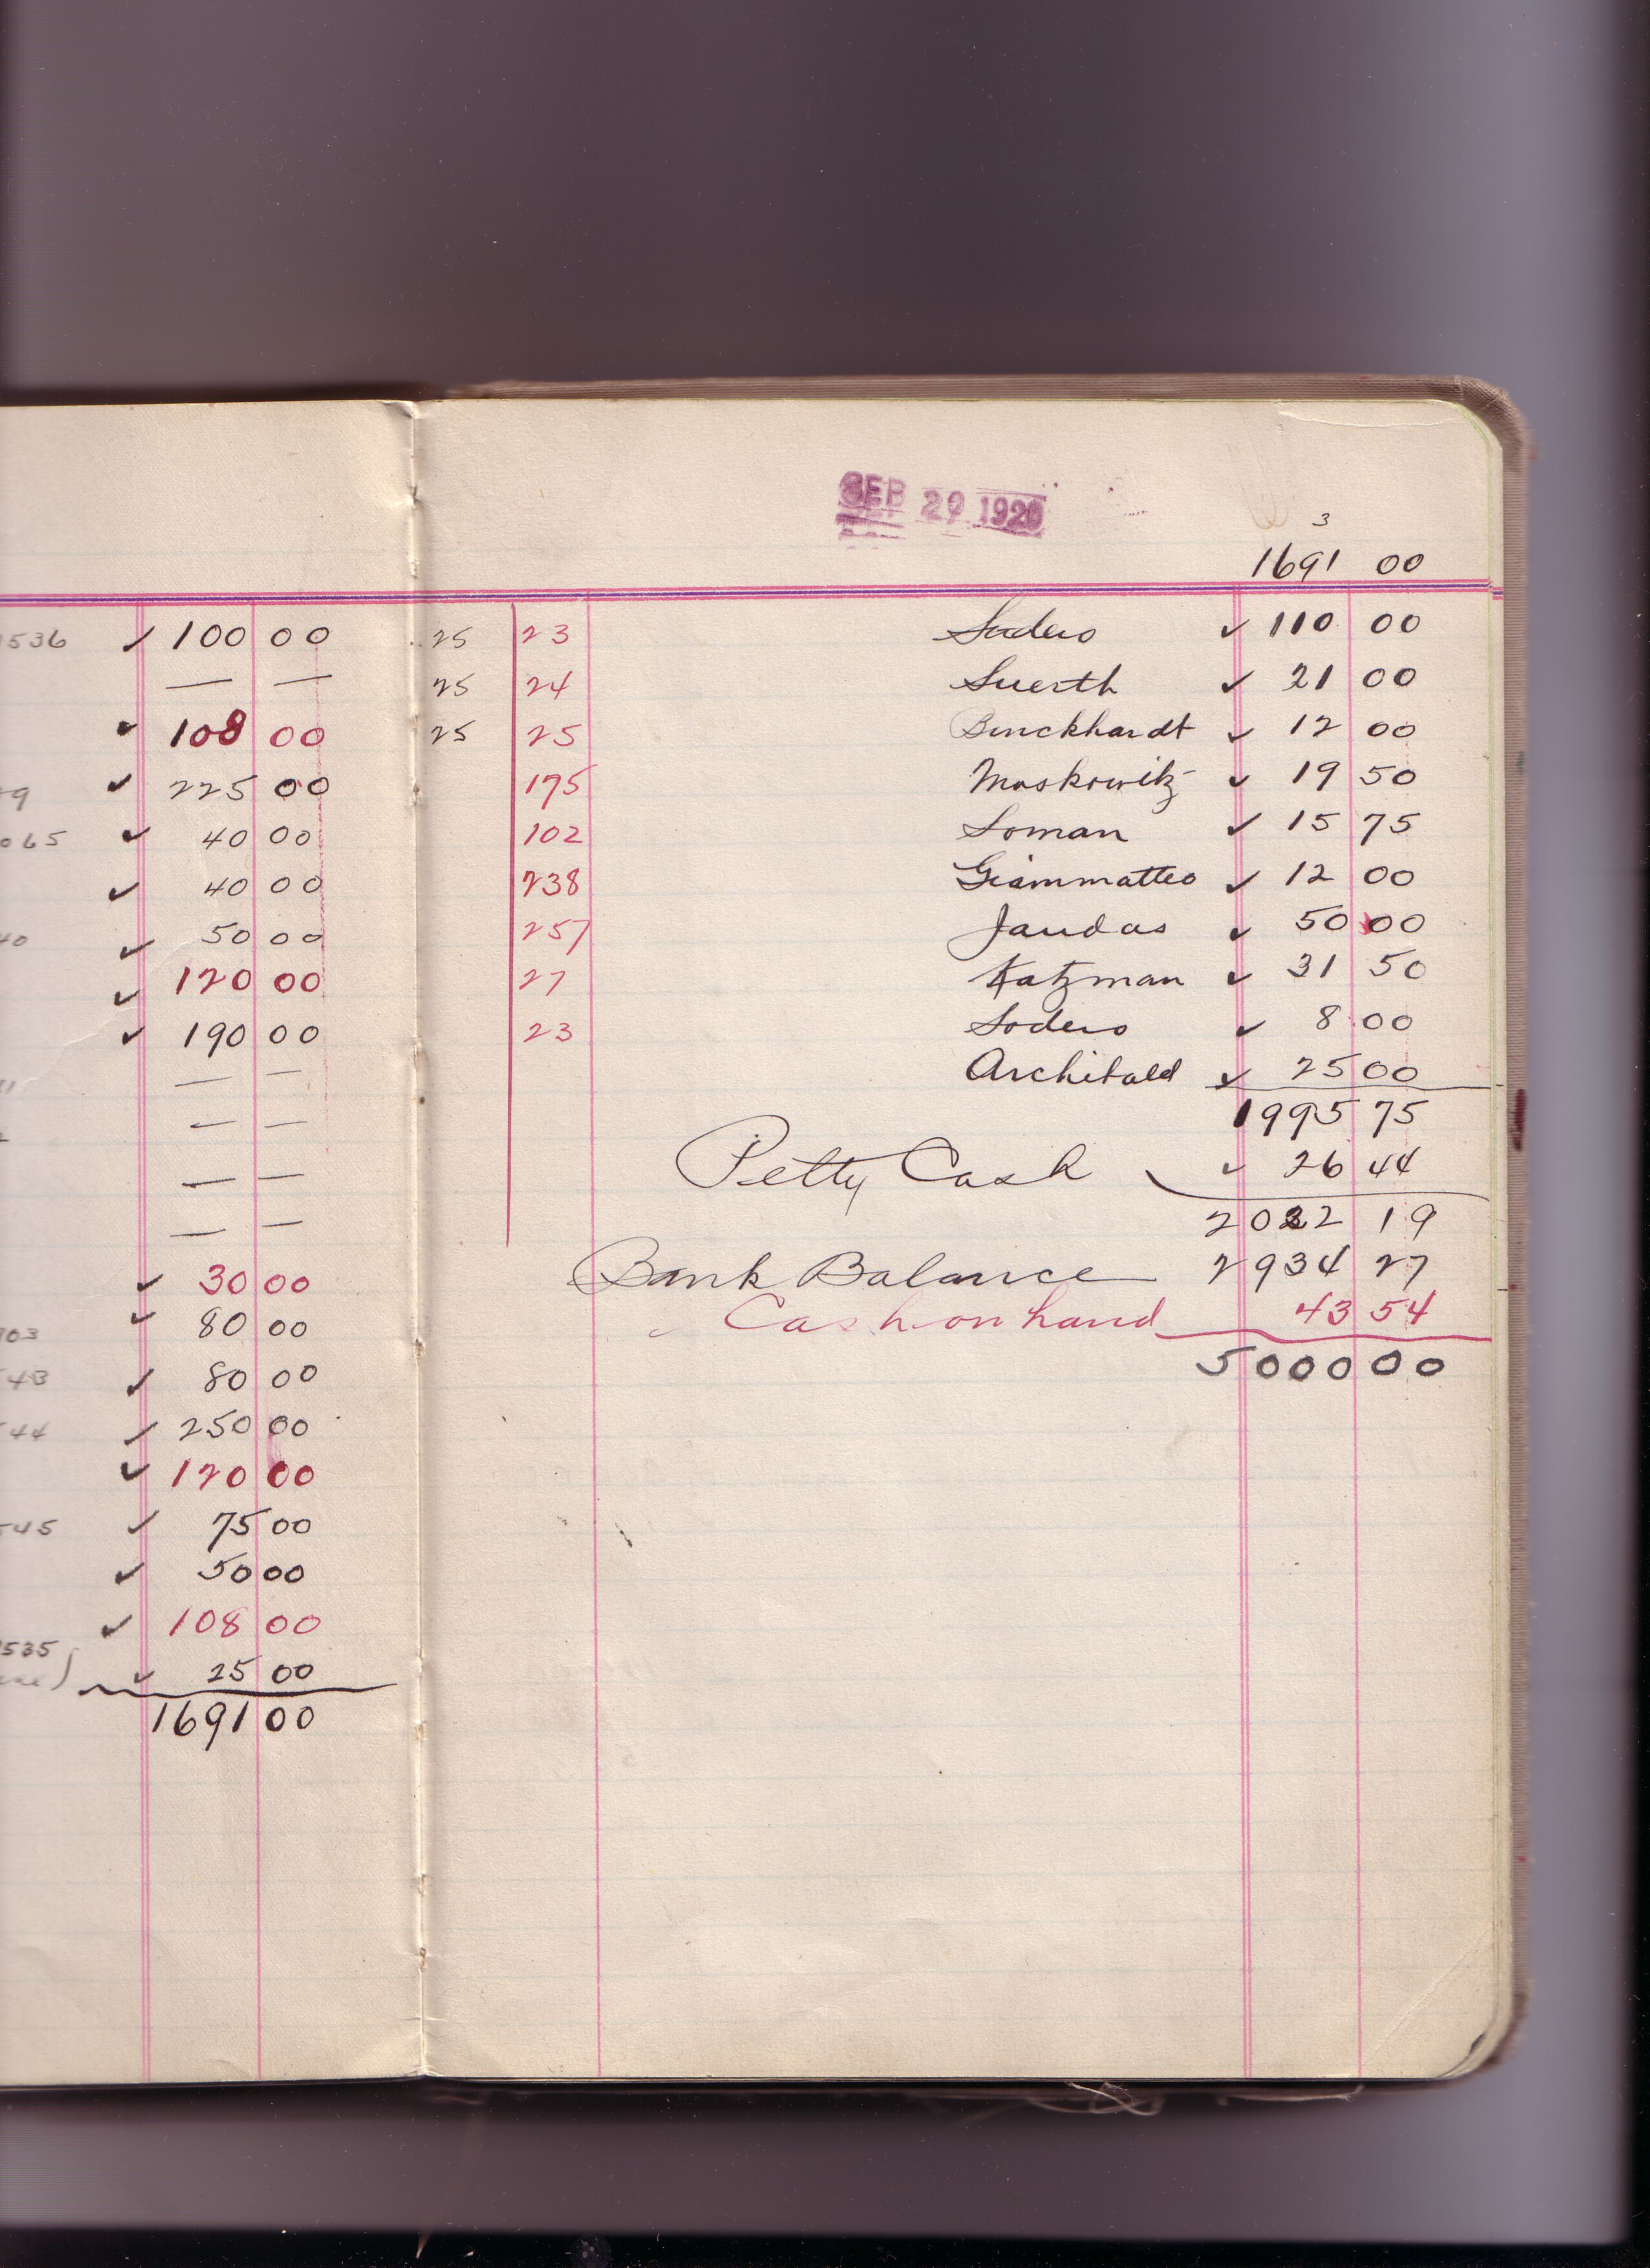 536 ✓ 100 00
— —
✓ 108 00
9 ✓ 225 00
065 ✓ 40 00
✓ 40 00
40 ✓ 50 00
✓ 120 00
✓ 190 00
— —
— —
— —
— —
✓ 30 00
703 ✓ 80 00
43 ✓ 80 00
44 ✓ 250 00
✓ 120 00
545 ✓ 75 00
✓ 50 00
✓ 108 00
535
✓ 25 00
1691 00
SEP 29 1920
3
1691 00
25 23 Soders ✓ 110 00
25 24 Suerth ✓ 21 00
25 25 Burckhardt ✓ 12 00
175 Moskowitz ✓ 19 50
102 Loman ✓ 15 75
238 Giammatteo ✓ 12 00
257 Jaudas ✓ 50 00
27 Katzman ✓ 31 50
23 Soders ✓ 8 00
Archibald ✓ 25 00
1995 75
Petty Cash ✓ 26 44
2022 19
Bank Balance 2934 27
Cash on hand 43 54
5000 00